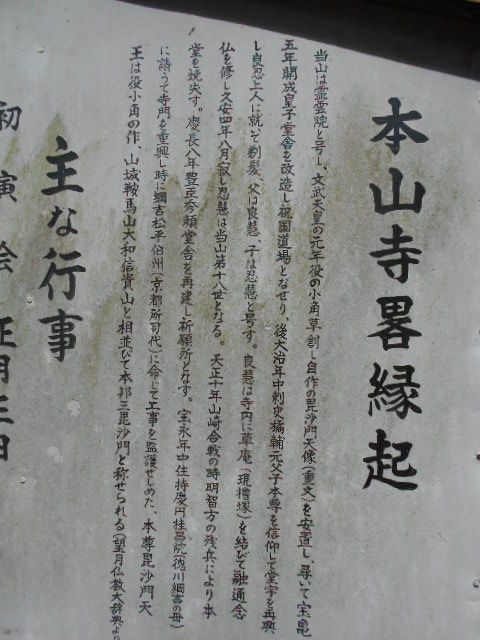 本山寺畧縁起
当山は霊雲院と号し、文武天皇の元年役の小角草創し自作の毘沙門天像(重文)を安置し、尋いて宝亀
五年開成皇子堂舎を改造し祝国道場となせり、後大治年中刺史橘輔元父子本尊を信仰して堂宇を再興
し良忍上人に就いて剃髪、父は良慧、子は忍慧と号す。良慧は寺内に草庵(現増塚)を結びて融通念
仏を修し久安四年八月寂し忍慧は当山第十八世となる。天正十年山崎合戦の時明智方の残兵により本
堂を焼失す。慶長八年豊臣秀頼堂舎を再建し祈願所となす。宝永年中住持慶円桂昌院(徳川綱吉の母)
に請うて寺門を重興し時に綱吉松平伯州(京都所司代)に命じて工事を監護せしめた、本尊毘沙門天
王は役小角の作、山城鞍馬山大和信貴山と相並びて本邦三毘沙門と称せられる(望月仏教大辞典より
主な行事
初寅会 正月三日